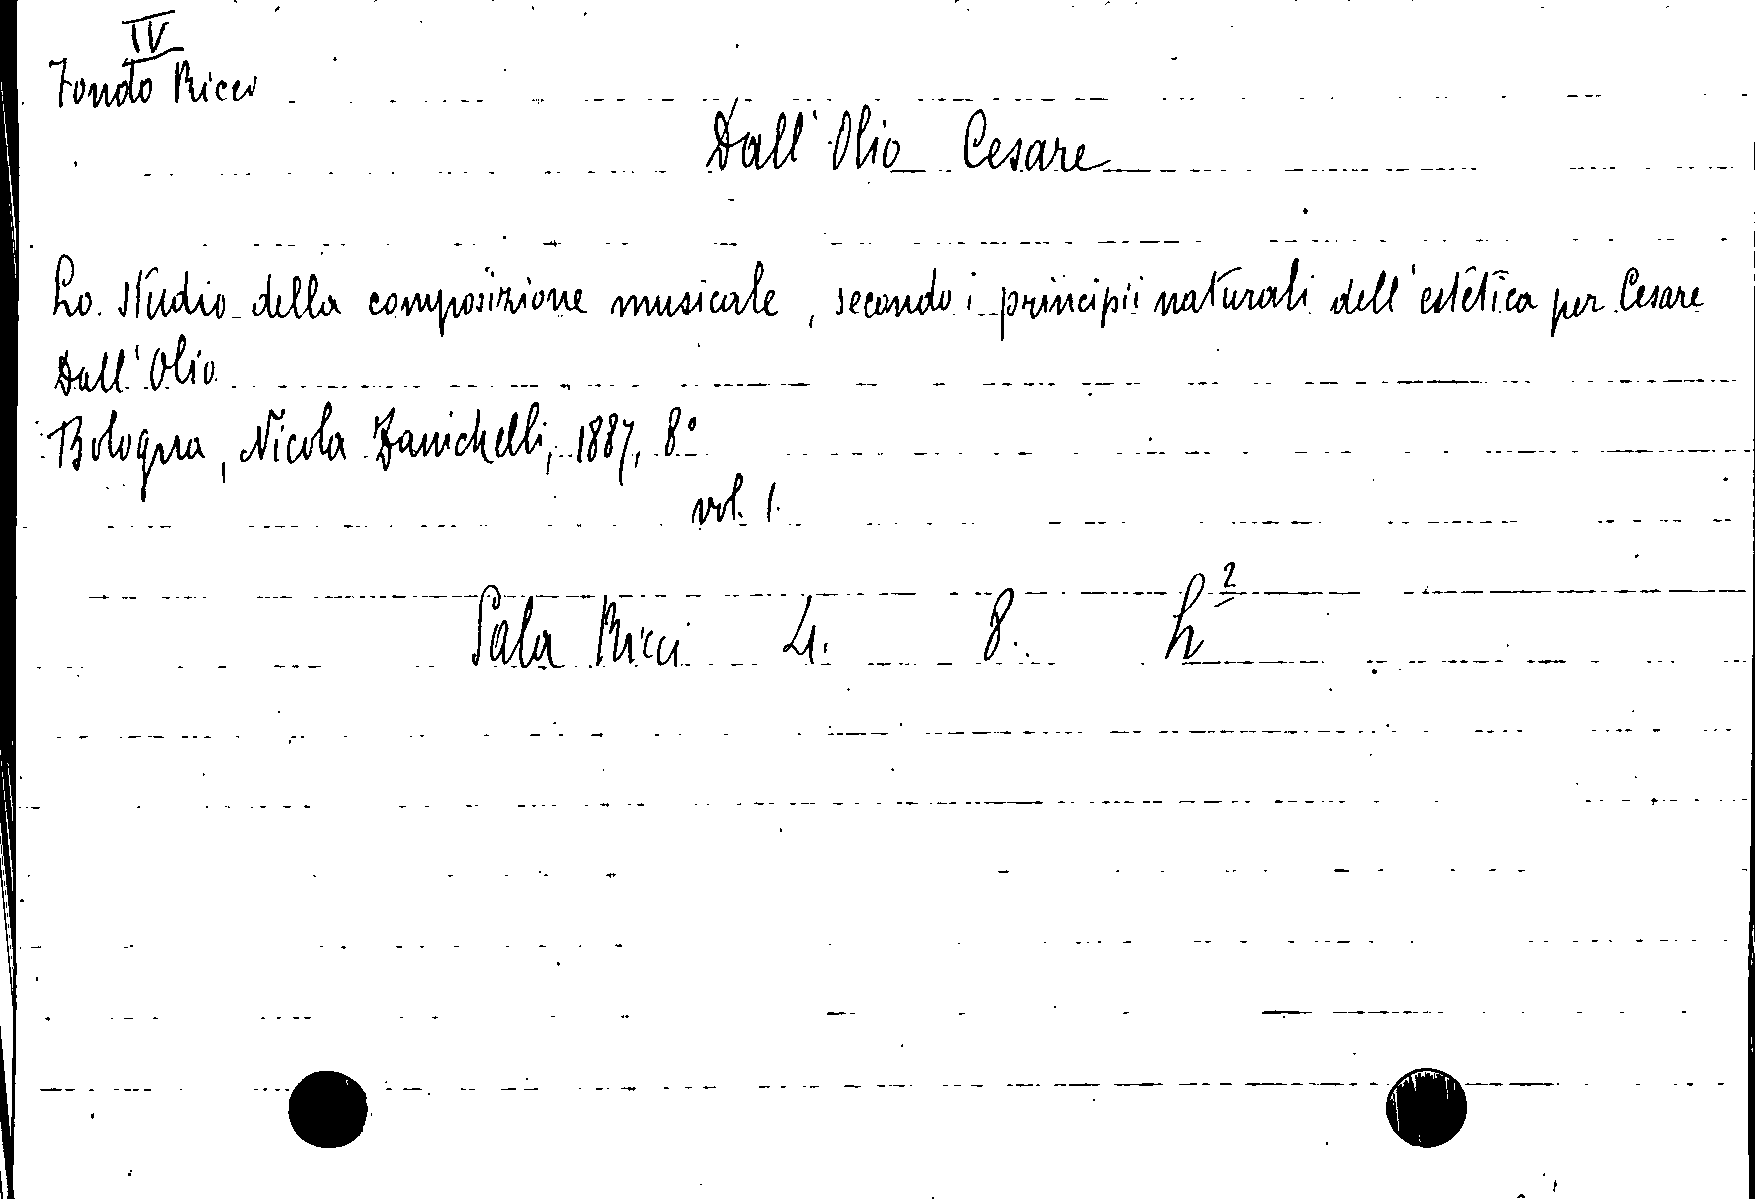 IV
Fondo Ricci
Dall'Olio Cesare
Lo studio della composizione musicale, secondo i principii naturali dell'estetica per Cesare
Dall'Olio
Bologna, Nicola Zanichelli, 1887, 8°
vol. 1.
Sala Ricci 4. 8. h²